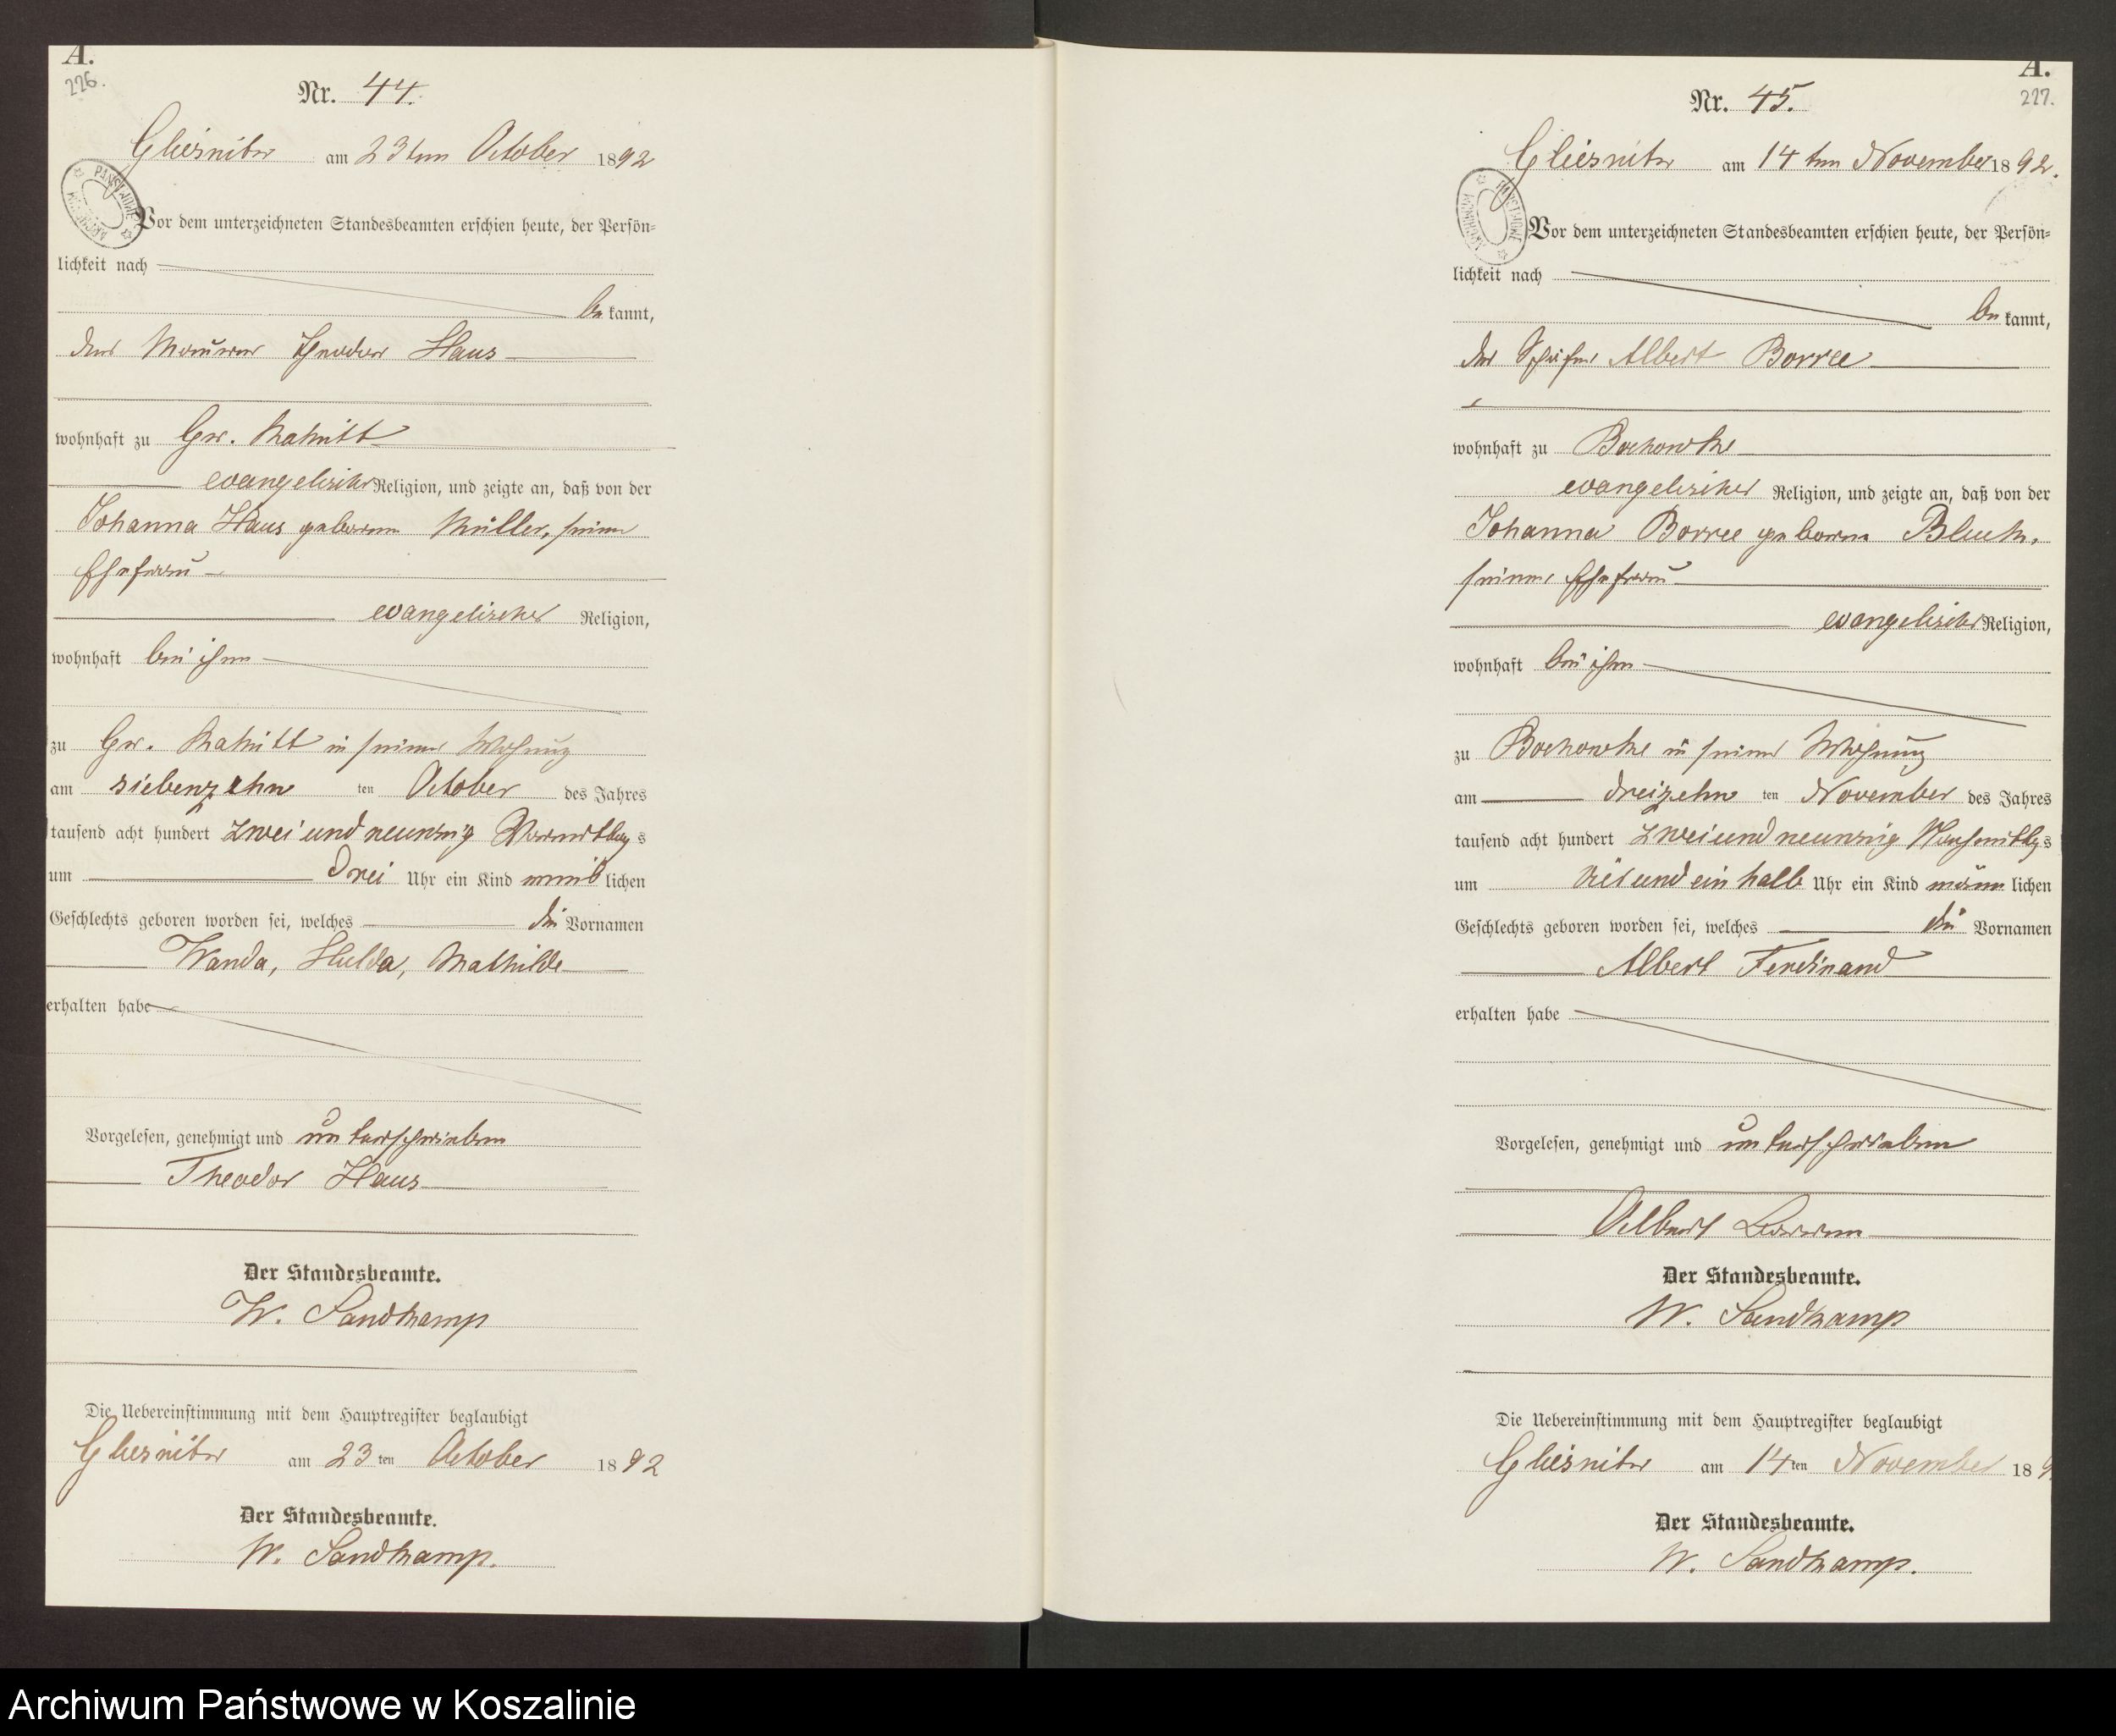 A.
226.
Nr. 44.
Gliesnitz am 23ten October 1892
Vor dem unterzeichneten Standesbeamten erschien heute, der Persön-
lichkeit nach
bekannt,
der Maurer Theodor Haus
wohnhaft zu Gr.
evangelischer Religion, und zeigte an, daß von der
Johanna Haus geborene Müller, seiner
Ehefrau
evangelischer Religion,
wohnhaft bei ihm
zu Gr. in seiner Wohnung
am siebenzehn ten October des Jahres
tausend acht hundert zwei und neunzig Vormittags
um drei Uhr ein Kind weiblichen
Geschlechts geboren worden sei, welches die Vornamen
Wanda, Hulda, Mathilde
erhalten habe
Vorgelesen, genehmigt und unterschrieben
Theodor Haus
Der Standesbeamte.
W. Sandkamp
Die Uebereinstimmung mit dem Hauptregister beglaubigt
Gliesnitz am 23ten October 1892
Der Standesbeamte.
W. Sandkamp.
A.
227.
Nr. 45.
Gliesnitz am 14ten November 1892.
Vor dem unterzeichneten Standesbeamten erschien heute, der Persön-
lichkeit nach
bekannt,
der Schäfer Albert Borree
wohnhaft zu Bochowke
evangelischer Religion, und zeigte an, daß von der
Johanna Borree geborene
seiner Ehefrau
evangelischer Religion,
wohnhaft bei ihm
zu Bochowke in seiner Wohnung
am dreizehn ten November des Jahres
tausend acht hundert zwei und neunzig Nachmittags
um und ein halb Uhr ein Kind männlichen
Geschlechts geboren worden sei, welches die Vornamen
Albert Ferdinand
erhalten habe
Vorgelesen, genehmigt und unterschrieben
Albert
Der Standesbeamte.
W. Sandkamp
Die Uebereinstimmung mit dem Hauptregister beglaubigt
Gliesnitz am 14ten November 189
Der Standesbeamte.
W. Sandkamp.
Archiwum Państwowe w Koszalinie